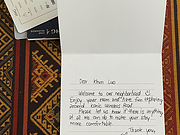 Dear Khun Luo
Welcome to our neighborhood ☺
Enjoy your room and have fun exploring
around iconic Wireless Road
Please let us know if there is anything
at all we can do to make your stay
more comfortable.
Thank you,